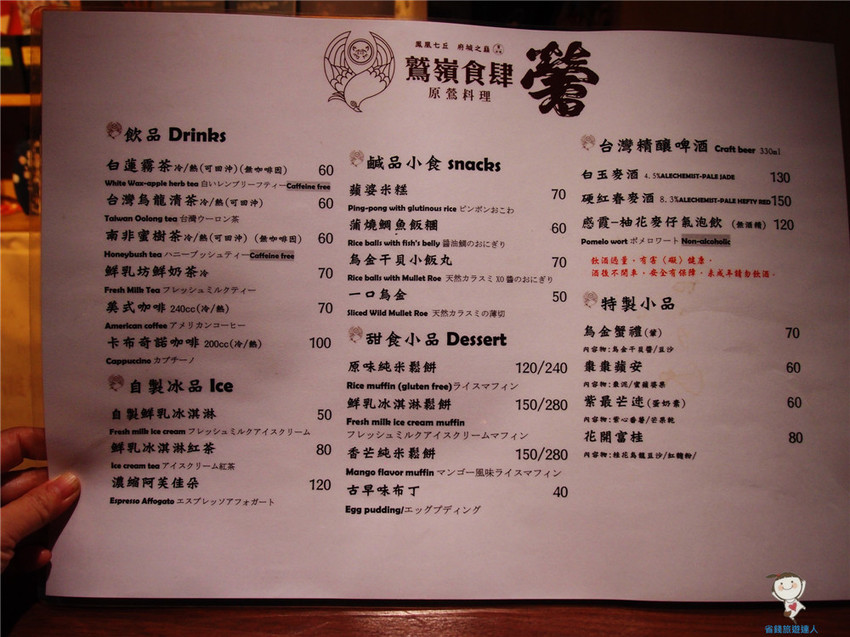 鳳凰七丘 府城之最
鷲嶺食肆
原鶯料理
飲品 Drinks
白蓮霧茶冷/熱(可回沖)(無咖啡因) 60
White Wax-apple herb tea 白いレンブリーフティーCaffeine free
台灣烏龍清茶冷/熱(可回沖) 60
Taiwan Oolong tea 台灣ウーロン茶
南非蜜樹茶冷/熱(可回沖)(無咖啡因) 60
Honeybush tea ハニーブッシュティーCaffeine free
鮮乳坊鮮奶茶冷 70
Fresh Milk Tea フレッシュミルクティー
美式咖啡 240cc(冷/熱) 70
American coffee アメリカンコーヒー
卡布奇諾咖啡 200cc(冷/熱) 100
Cappuccino カプチーノ
自製冰品 Ice
自製鮮乳冰淇淋 50
Fresh milk ice cream フレッシュミルクアイスクリーム
鮮乳冰淇淋紅茶 80
Ice cream tea アイスクリーム紅茶
濃縮阿芙佳朵 120
Espresso Affogato エスプレッソアフォガート
鹹品小食 snacks
蘋婆米糕 70
Ping-pong with glutinous rice ピンポンおこわ
蒲燒鯛魚飯糰 60
Rice balls with fish's belly 醬油鯛のおにぎり
烏金干貝小飯丸 70
Rice balls with Mullet Roe 天然カラスミ XO 醬のおにぎり
一口烏金 50
Sliced Wild Mullet Roe 天然カラスミの薄切
甜食小品 Dessert
原味純米鬆餅 120/240
Rice muffin (gluten free)ライスマフィン
鮮乳冰淇淋鬆餅 150/280
Fresh milk ice cream muffin
フレッシュミルクアイスクリームマフィン
香芒純米鬆餅 150/280
Mango flavor muffin マンゴー風味ライスマフィン
古早味布丁 40
Egg pudding/エッグプディング
台灣精釀啤酒 Craft beer 330ml
白玉麥酒 4.5%ALECHEMIST-PALE JADE 130
硬紅春麥酒 8.3%ALECHEMIST-PALE HEFTY RED 150
惑霞-柚花麥仔氣泡飲 (無酒精) 120
Pomelo wort ポメロワート Non-alcoholic
飲酒過量，有害(礙)健康。
酒後不開車，安全有保障，未成年請勿飲酒。
特製小品
烏金蟹禮(葷) 70
內容物:烏金干貝醬/豆沙
棗棗蘋安 60
內容物:棗泥/蜜蘋婆果
紫最芒迷(蛋奶素) 60
內容物:紫心番薯/芒果乾
花開富桂 80
內容物:桂花烏龍豆沙/紅麴粉/
省錢旅遊達人